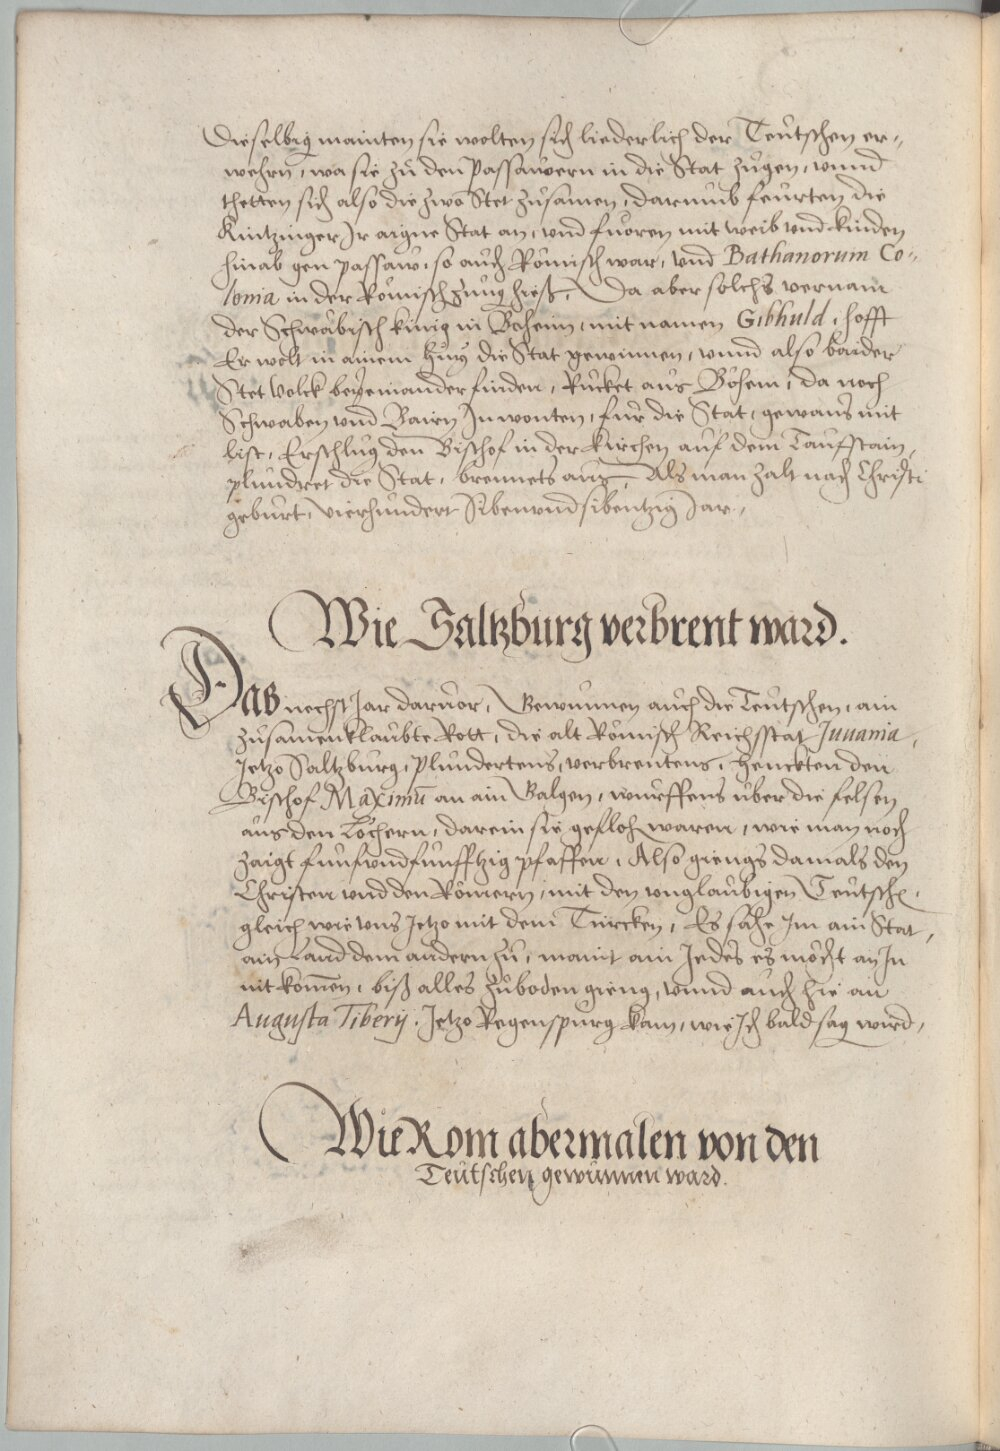 Dieselbig mainten sie wolten sich liederlich der Teutschen er„
wehrn, wa sie zu den Passawern in die Stat zugen, vnnd
thetten sich also die zwo Stet zusamen, darumb feurten die
Kintzinger Ir aigne Stat an, vnd fuoren mit weib vnd kinden
hinab gen passaw, so auch Römisch war, vnd Bathanorum Co„
lonia in der Römisch Zung hieß, Da aber solchs vernam
der Schwäbisch kinig in Beheim, mit namen Gibhuld, hofft
Er wolt in ainem zug die Stat gewinnen, vnnd also baider
Stet Volck beyeinander finden, Rucket aus Böhem, da noch
Schwaben vnd Bairn Inwonten, für die Stat, gewans mit
list, Erschlug den Bischof in der kirchen auf dem Taufstain,
plundret die Stat, brennets aus, Als man zalt nach Christi
geburt, vierhundert Sibenvndsibentzig Jar,
Wie Saltzburg verbrent ward.
Das nechst Jar daruor, Gewunnen auch die Teutschen, ain
zusamenklaubte Rott, die alt Römisch Reichsstat Juuania,
Jetzo Saltzburg, plundertens, verbrentens, henckten den
Bischof Maximū an ain Galgen, wurffens über die felsen
aus den Löchern, darein sie gefloh waren, wie man noch
zaigt funfvndfunfftzig pfaffen, Also giengs damals den
Christen vnd den Römern, mit den vnglaubigen Teutschē,
gleich wie vns Jetzo mit dem Türcken, Es sahe Im ain Stat,
ain Land dem andern zu, maint ain Jedes es möcht an In
nit komen, biß alles zuboden gieng, vnnd auch hie an
Augusta Tiberij, Jetzo Regenspurg kam, wie Ich bald sag wird,
Wie Rom abermalen von den
Teutschen gewunnen ward.